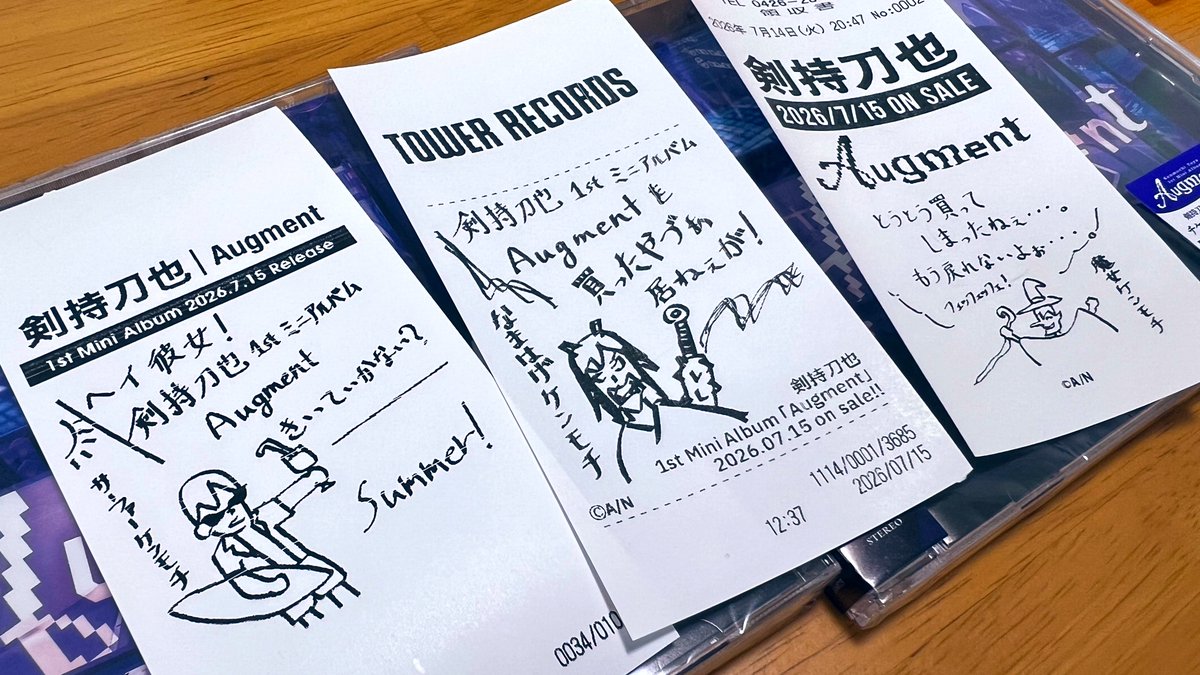 剣持刀也 | Augment
1st Mini Album 2026.7.15 Release
ヘイ彼女!
剣持刀也 1stミニアルバム
Augment
きいていかない?
Summer!
サーファーケンモチ
0034/010
TOWER RECORDS
剣持刀也 1st ミニアルバム
Augmentを
買ったやづぁ
居ねぇが!
なまはげケンモチ
剣持刀也
1st Mini Album「Augment」
2026.07.15 on sale!!
©A/N
1114/0001/3685
2026/07/15
12:37
TEL 0426-20
領収書
2026年 7月14日(火) 20:47 No:0002
剣持刀也
2026/7/15 ON SALE
Augment
とうとう買って
しまったねぇ・・・。
もう戻れないよぉ・・・・
フェッフェッフェ!
魔女ケンモチ
©A/N
STEREO